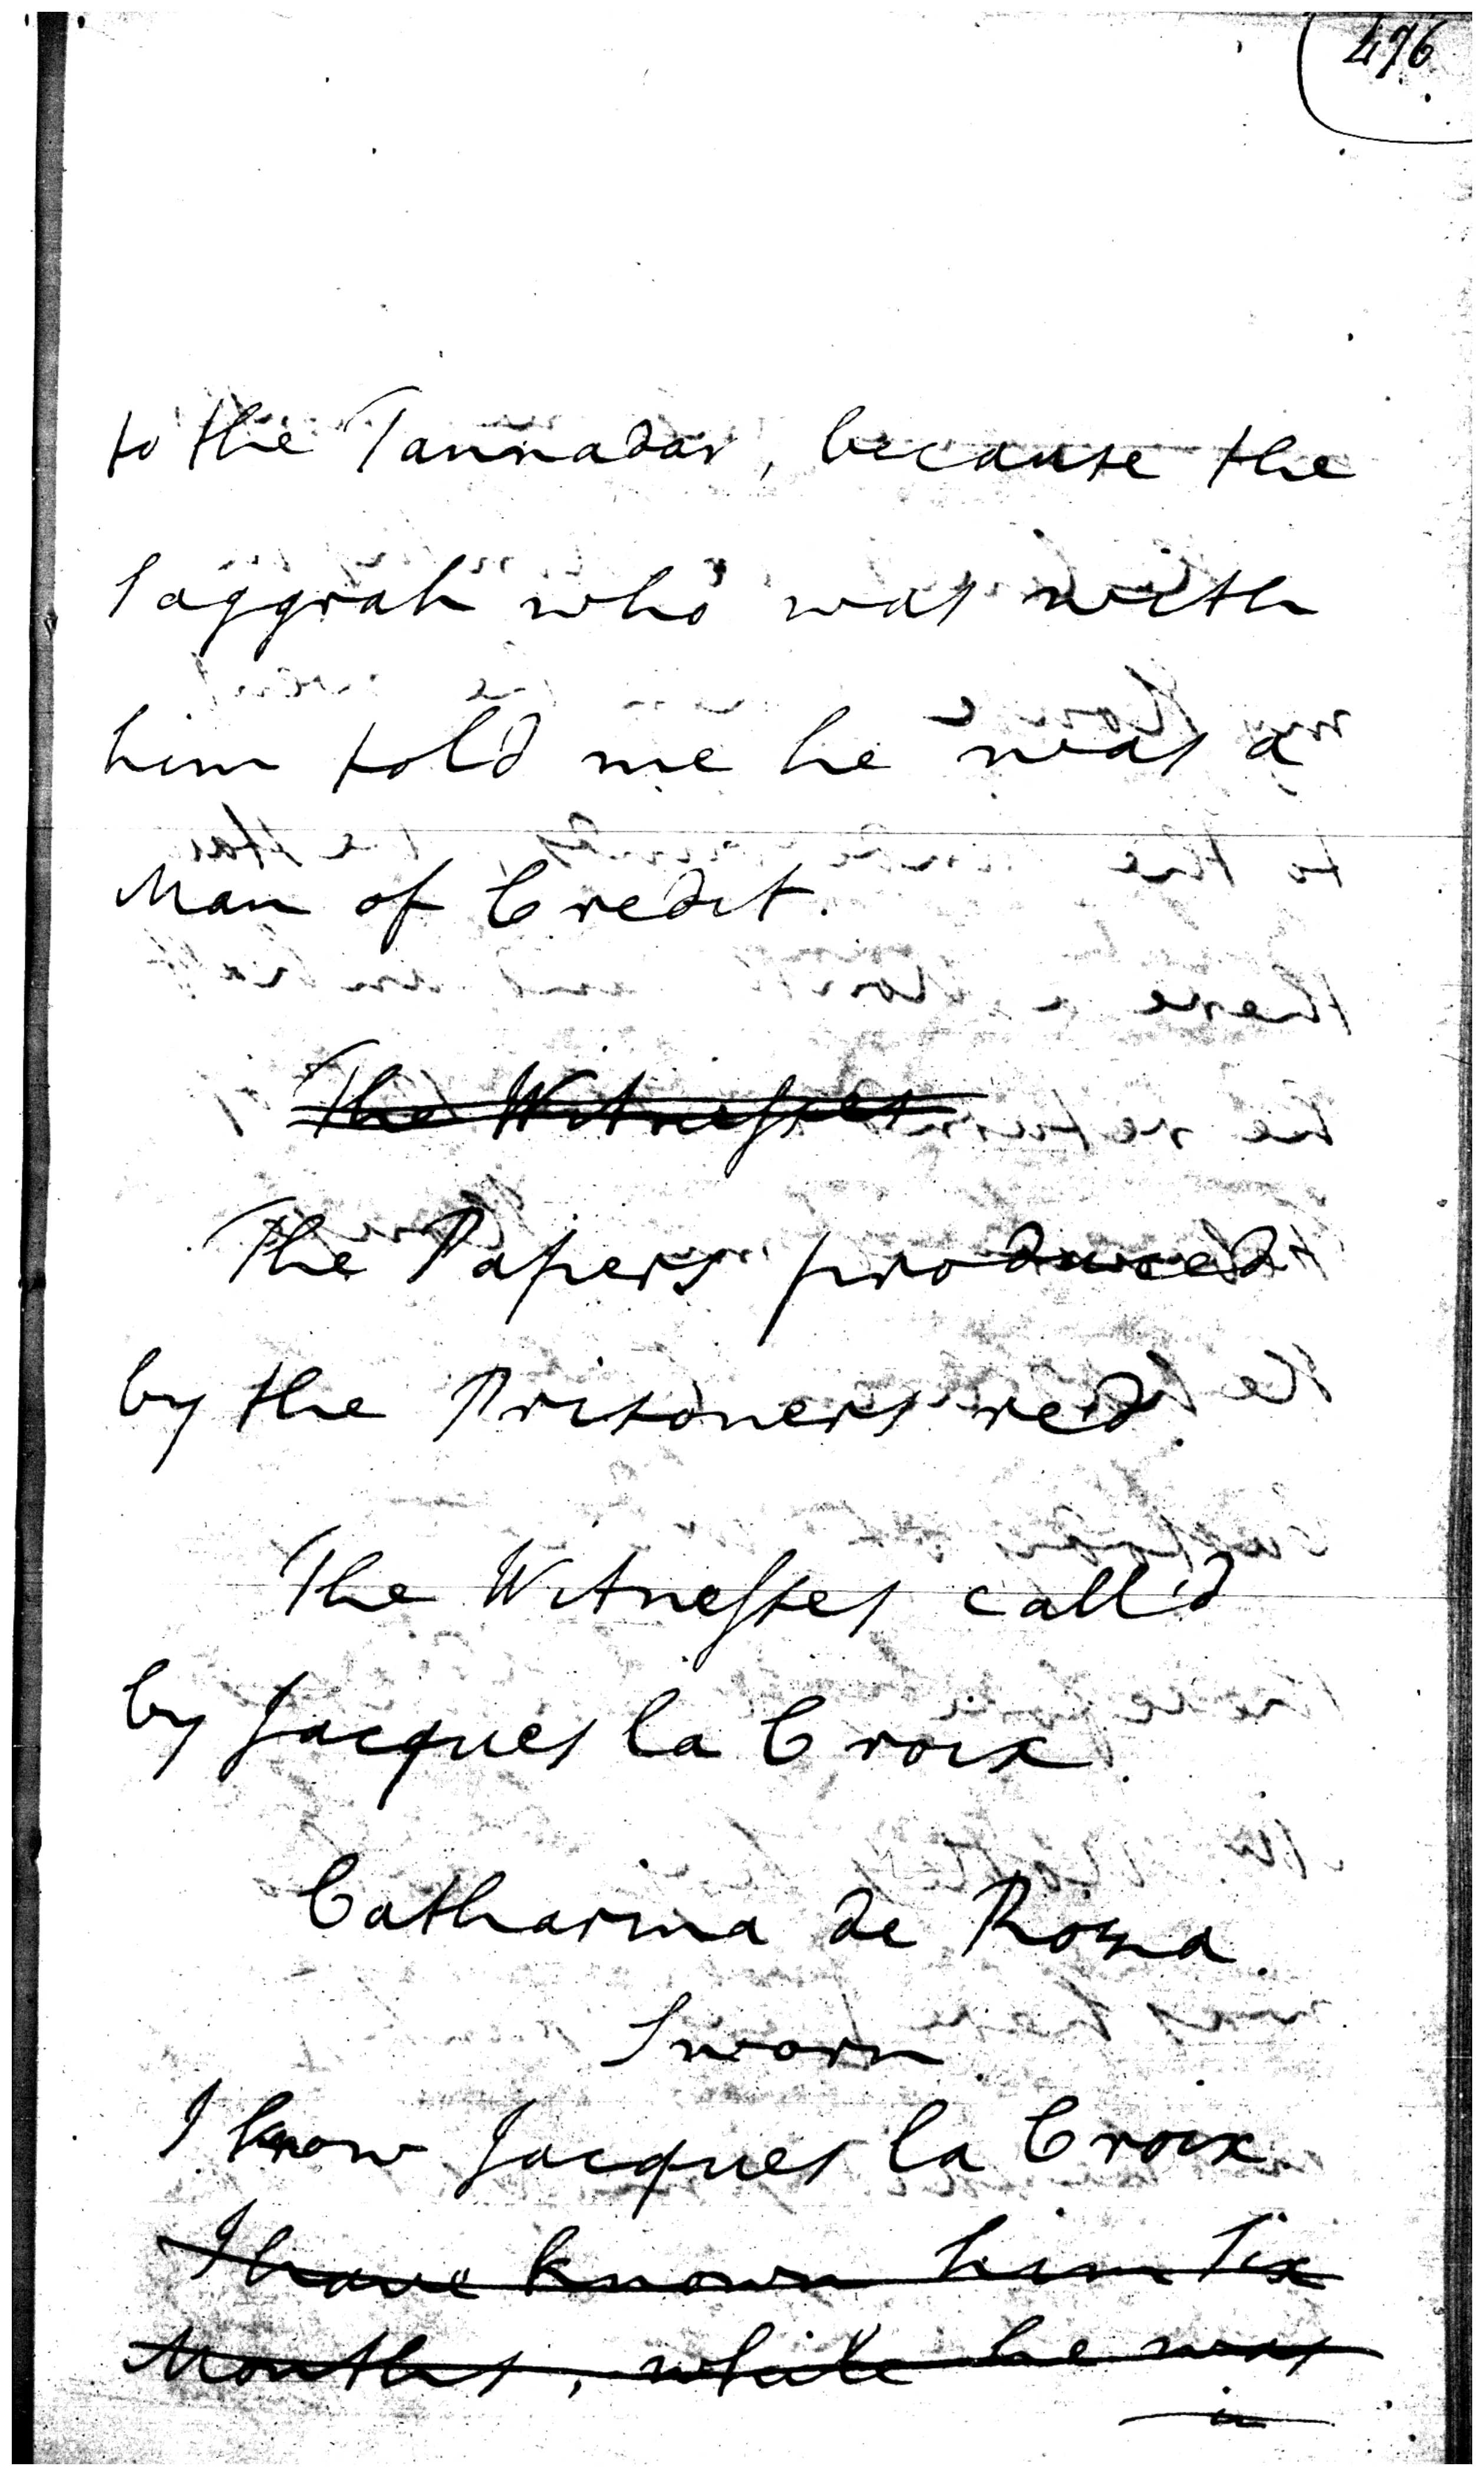 476
to the Tannadar, because the
Saggrah who was with
him told me he was a
Man of Credit.
The Witnesses
The Papers produced
by the Prisoners red.
The Witnesses call'd
by Jacques la Croix.
Catharina de Rosa.
Sworn
I know Jacques la Croix.
I have known him Six
Months, while he was
in